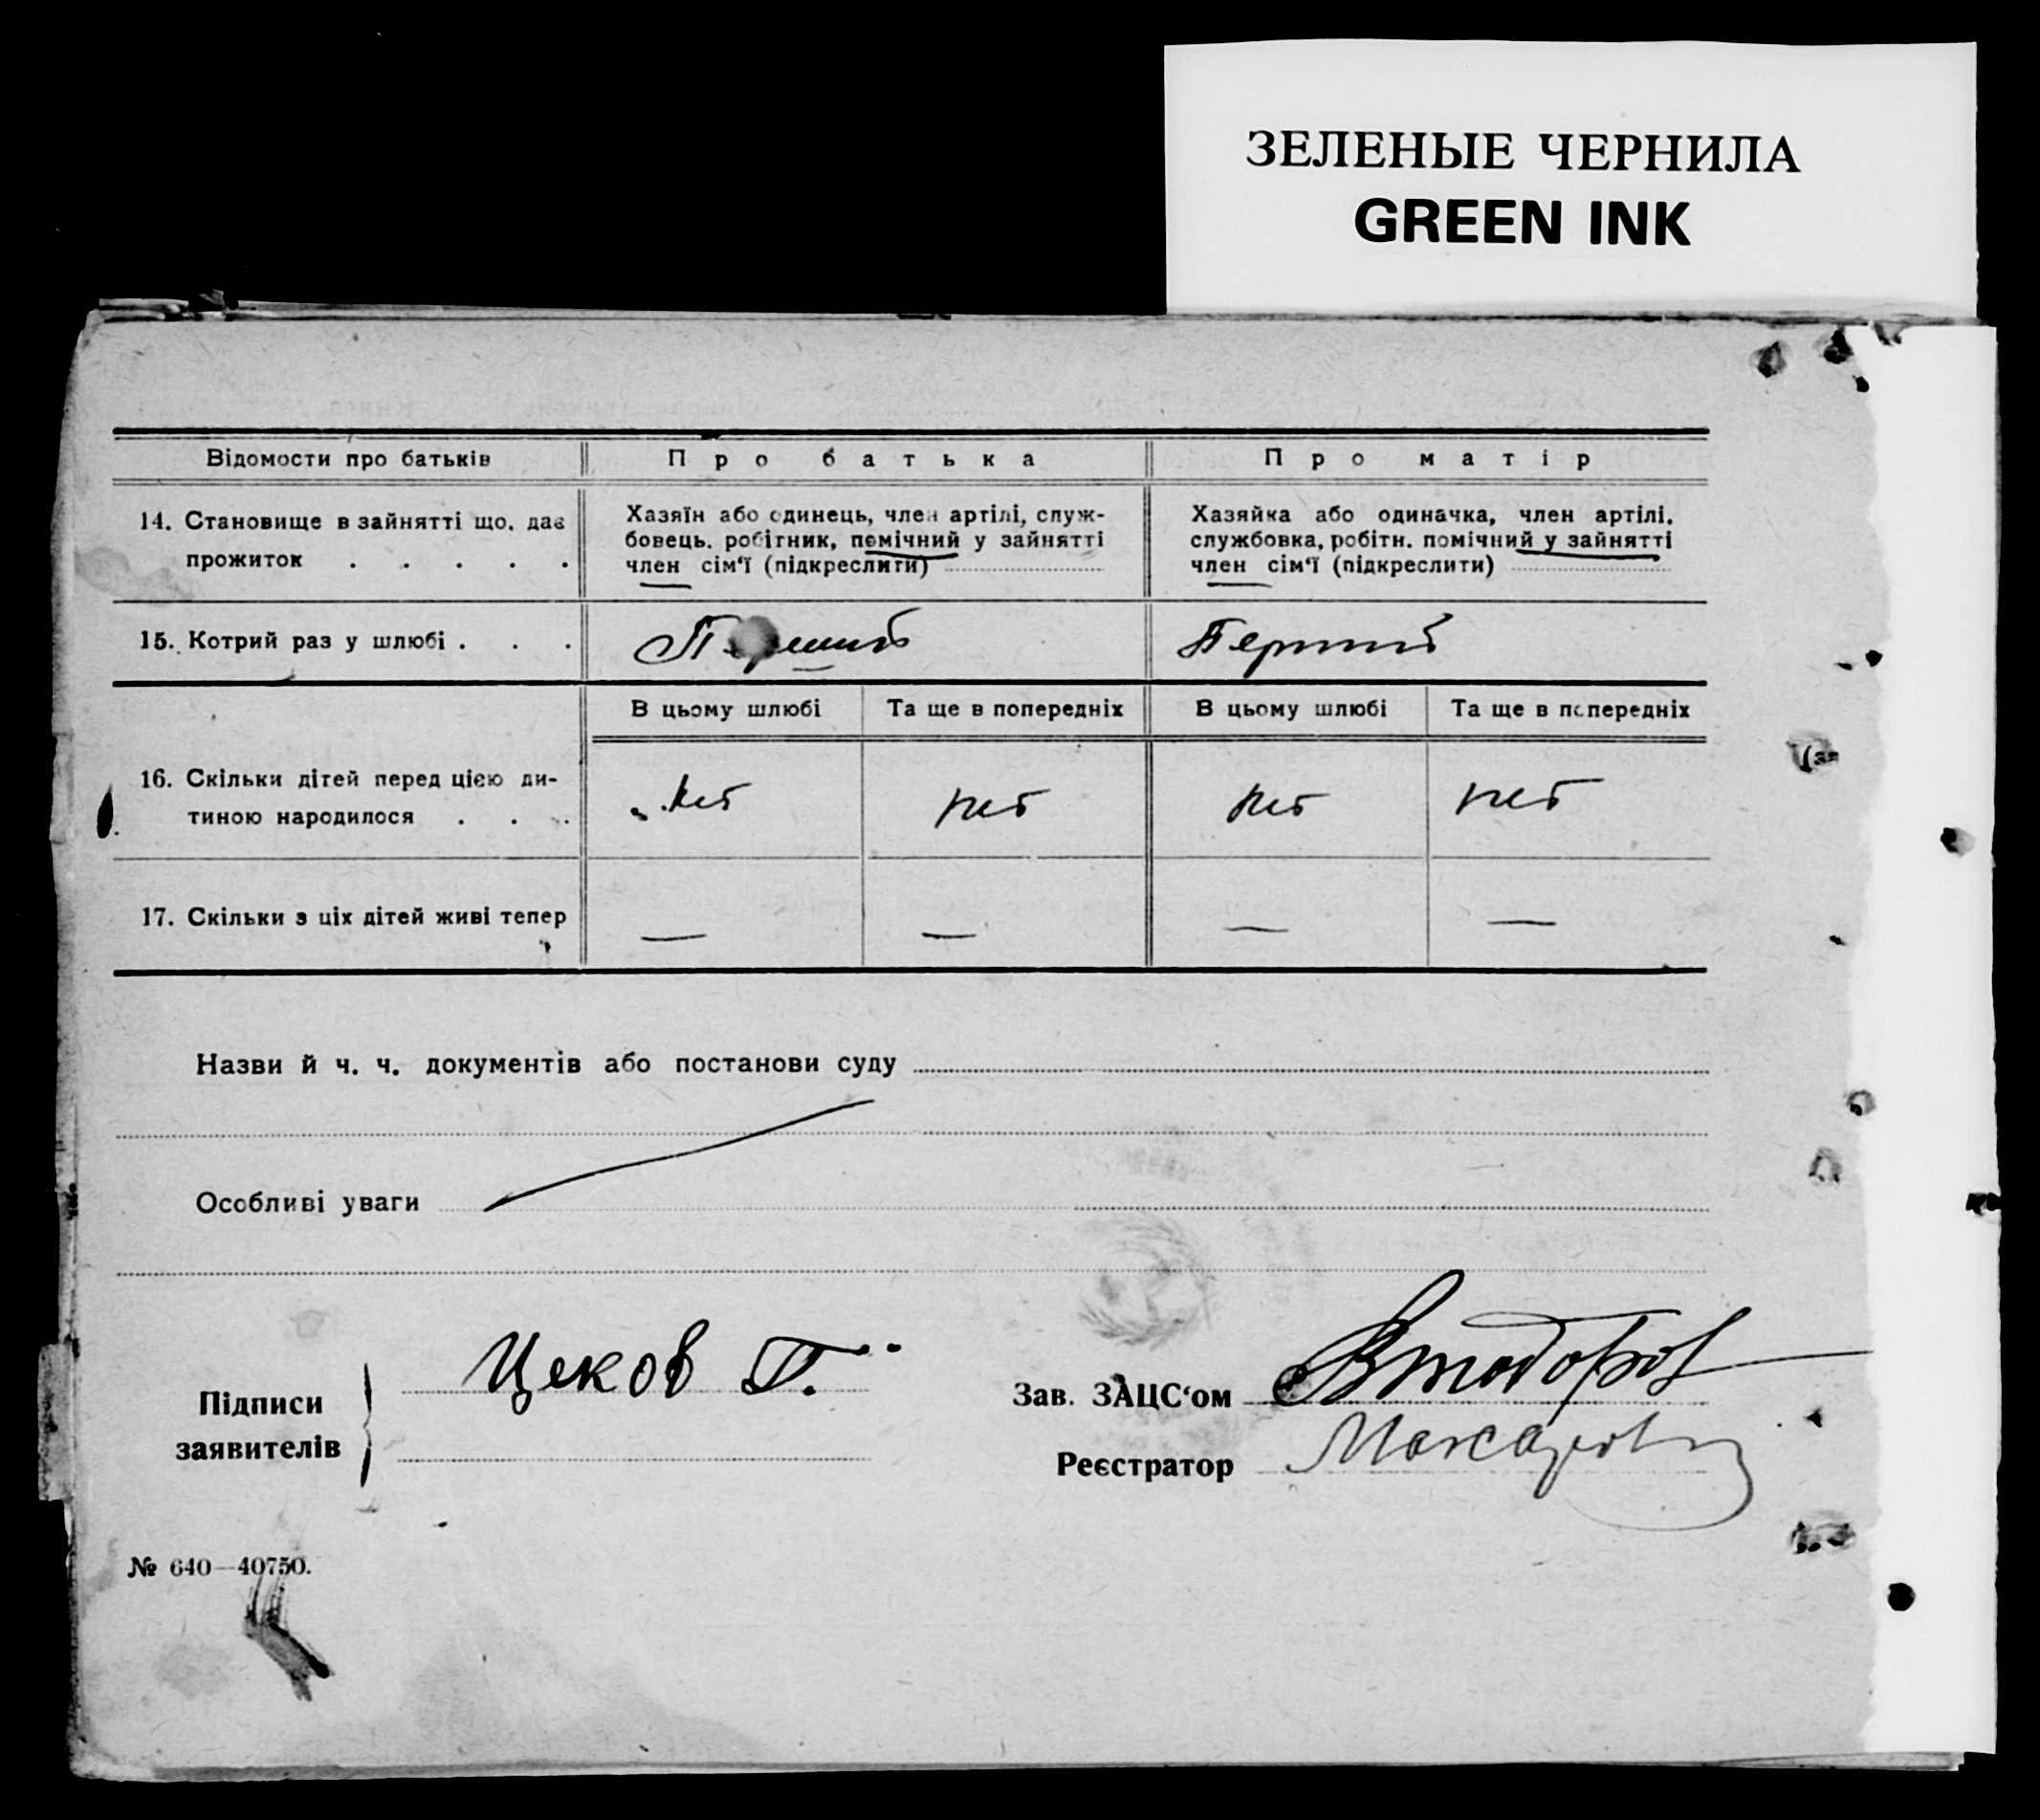 ЗЕЛЕНЫЕ ЧЕРНИЛА
GREEN INK
Відомости про батьків
Про батька
Про матір
14. Становище в зайнятті що, дає
прожиток . . . . .
Хазяїн або одинець, член артілі, служ-
бовець. робітник, помічний у зайнятті
член сім'ї (підкреслити)
Хазяйка або одиначка, член артілі.
службовка, робітн. помічний у зайнятті
член сім'ї (підкреслити)
15. Котрий раз у шлюбі . . .
Перший
Перший
В цьому шлюбі
Та ще в попередніх
В цьому шлюбі
Та ще в попередніх
16. Скільки дітей перед цією ди-
тиною народилося . . .
Нет
Нет
Нет
Нет
17. Скільки з ціх дітей живі тепер
—
—
—
—
Назви й ч. ч. документів або постанови суду
Особливі уваги
Підписи
заявителів
Цеков Г.
Зав. ЗАЦС'ом
Реєстратор
№ 640—40750.